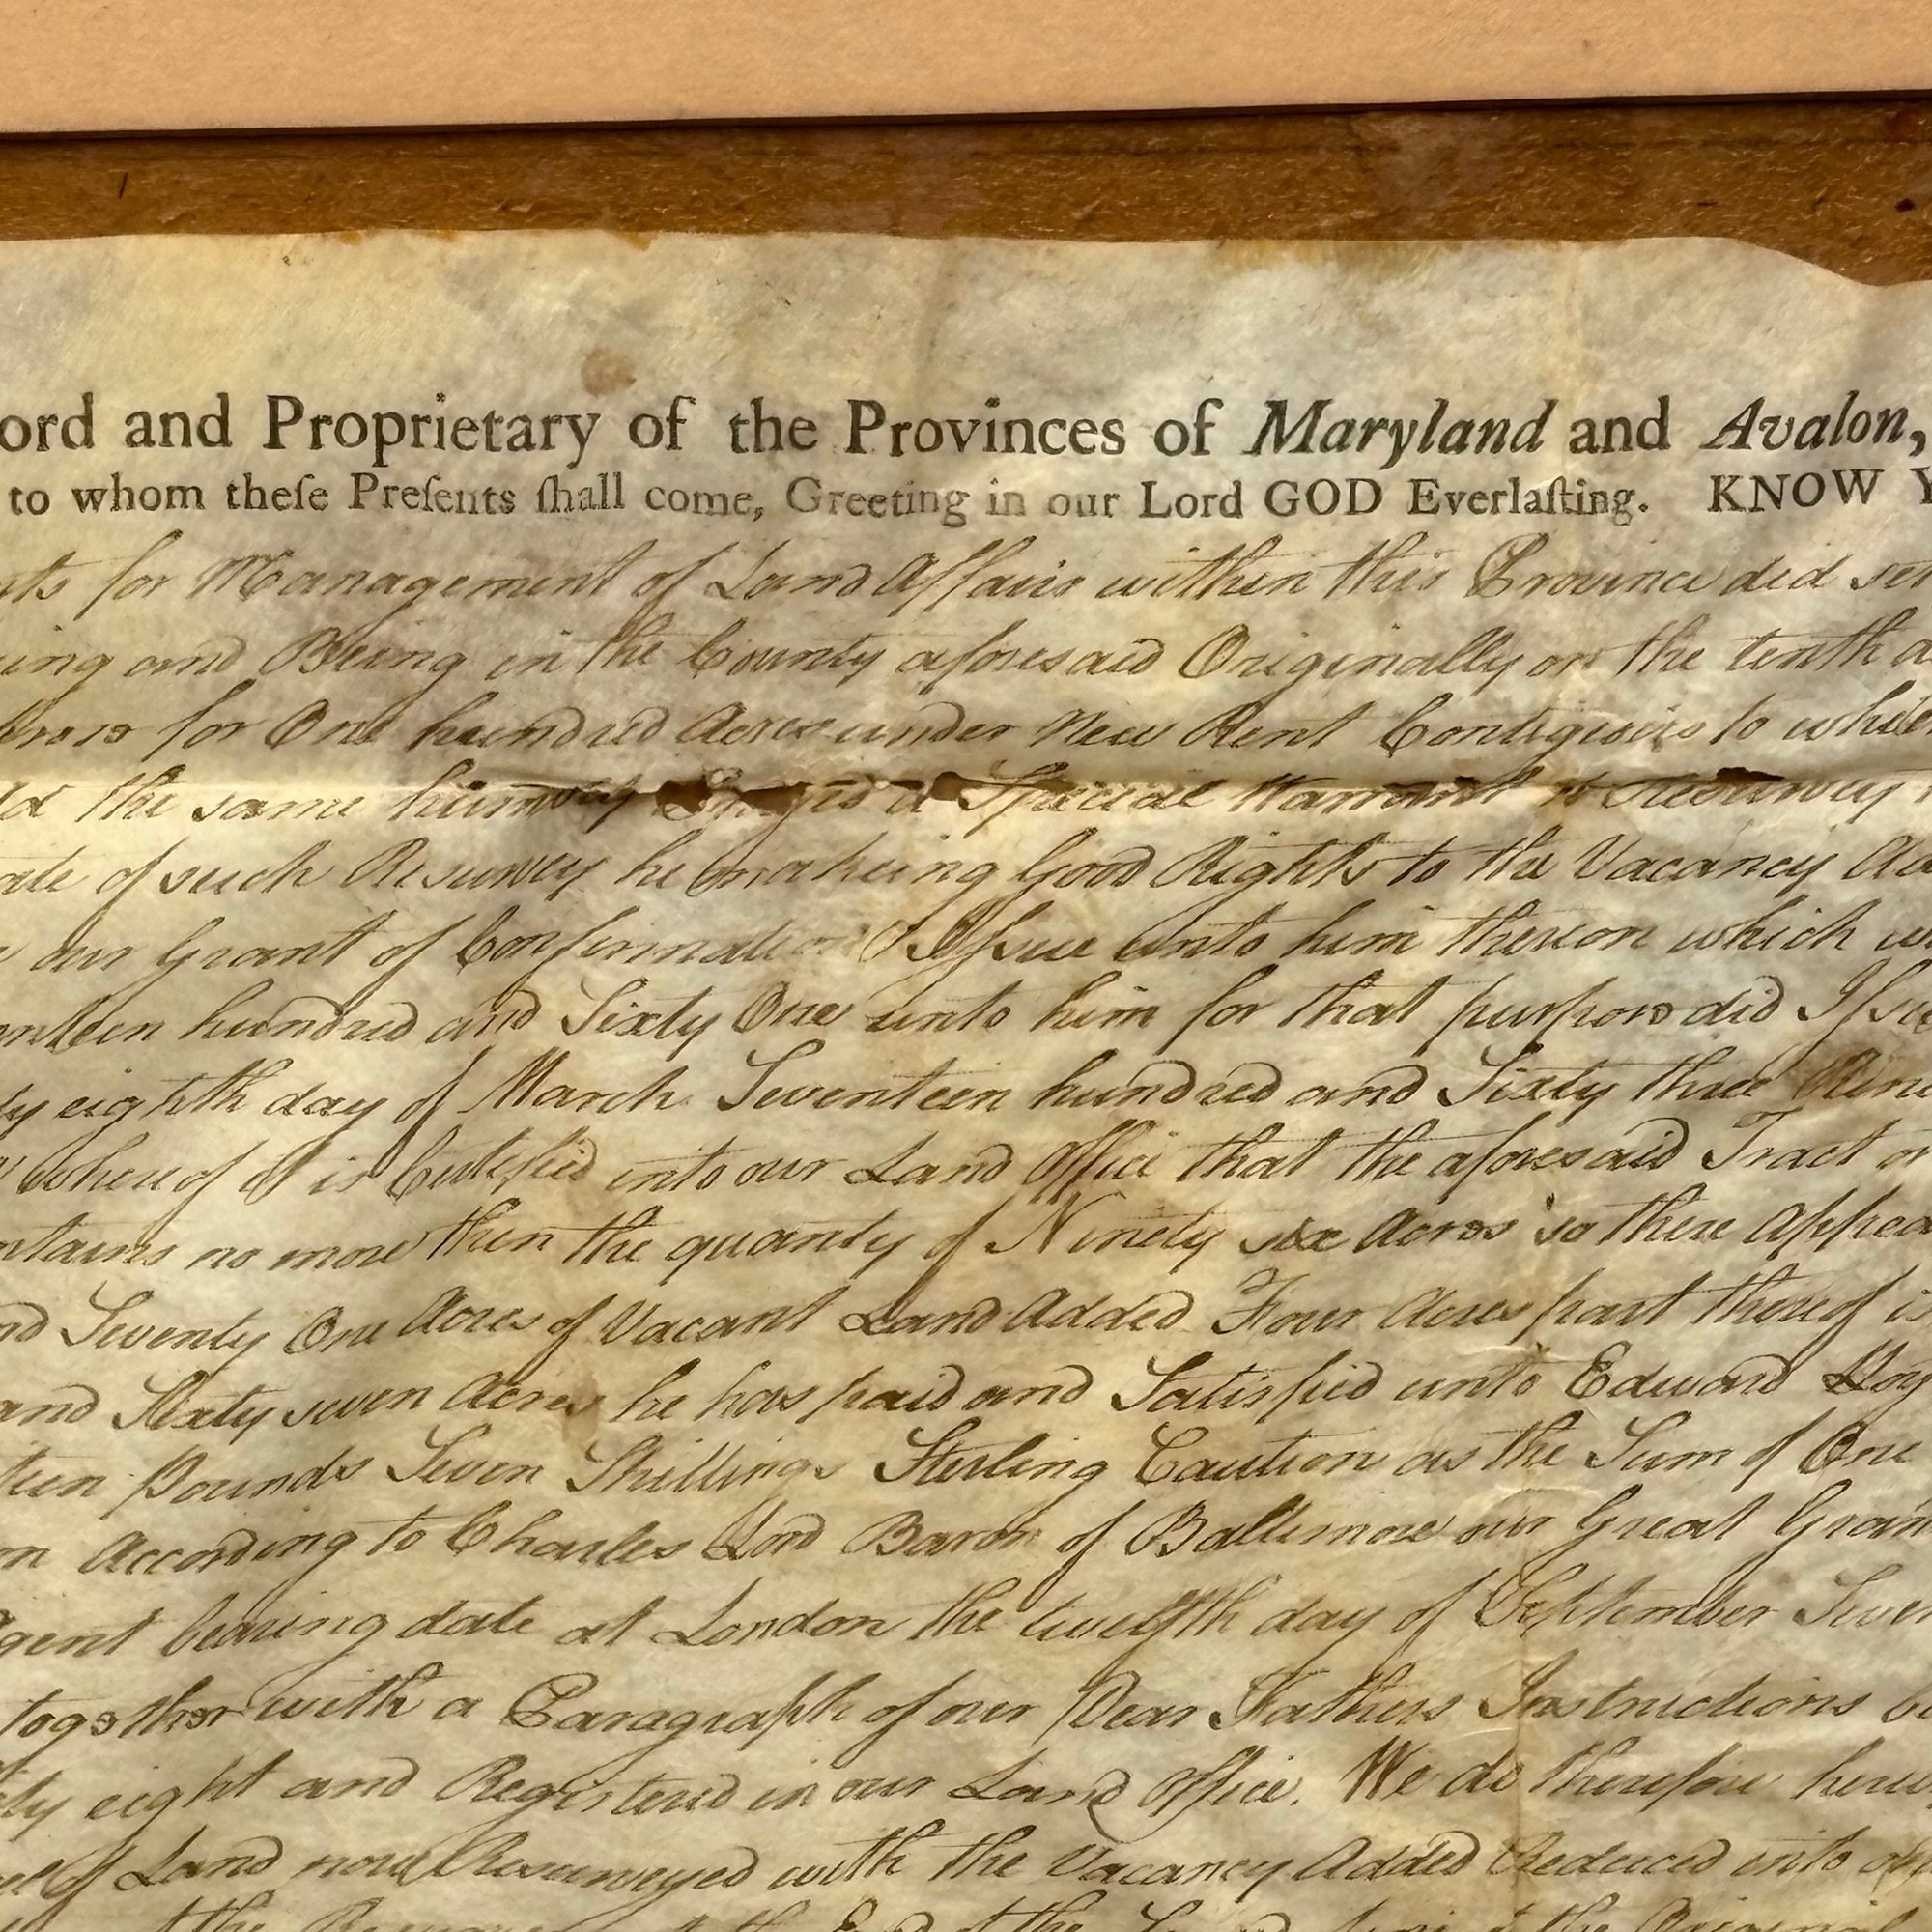 ord and Proprietary of the Provinces of Maryland and Avalon,
to whom theſe Preſents ſhall come, Greeting in our Lord GOD Everlaſting. KNOW Y
nts for Management of Land Affairs within this Province did set
ing and Being in the County aforesaid Originally on the tenth
for One hundred Acres under New Rent Contiguous to
the same humbly a Special Warrant to Resurvey
ate of such Resurvey he making Good Rights to the Vacancy
our Grant of Confirmation Issue unto him thereon which
nteen hundred and Sixty One unto him for that purpose did Issue
ty eighth day of March Seventeen hundred and Sixty three
whereof it is Certified into our Land Office that the aforesaid Tract or
ntains no more then the quantity of Ninety six Acres so there Appea
nd Seventy One Acres of Vacant Land Added Four Acres part thereof is
and Sixty seven Acres he has paid and Satisfied unto Edward
teen Pounds Seven Shillings Sterling Caution as the Sum of One
n According to Charles Lord Baron of Baltimore our Great Gran
gent bearing date at London the twelfth day of September Seven
together with a Paragraph of our Dear Fathers Instructions be
ty eight and Registered in our Land Office. We do therefore here
of Land now Resurveyed with the Vacancy Added Reduced into